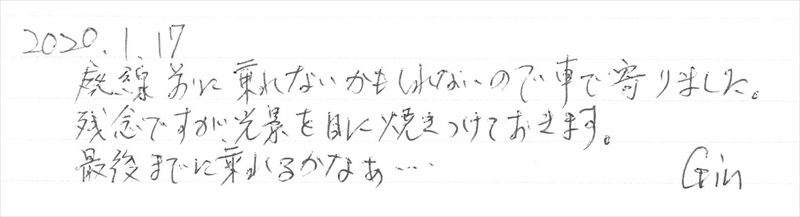 2020.1.17
廃線前に乗れないかもしれないので車で寄りました。
残念ですが光景を目に焼きつけておきます。
最後までに乗れるかなぁ…
Gin